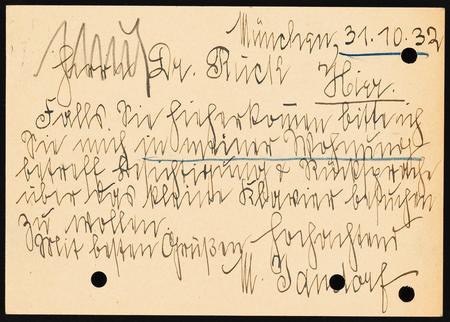 München, 31.10.32
Herrn Dr. Rück Hier.
Falls Sie hieherkommen bitte ich
Sie mich in meiner Wohnung
betreff Besichtigung & Rücksprache
über das kleine Klavier besuchen
zu wollen.
Mit besten Grüßen hochachtend
M. Jandorf